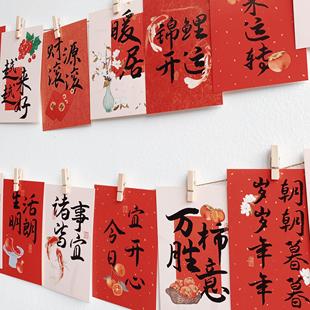 越来
越好
财源
滚滚
暖居
锦鲤
开运
来
运转
生活
明朗
诸事
皆宜
今日
宜开心
万柿
胜意
朝朝暮暮
岁岁年年